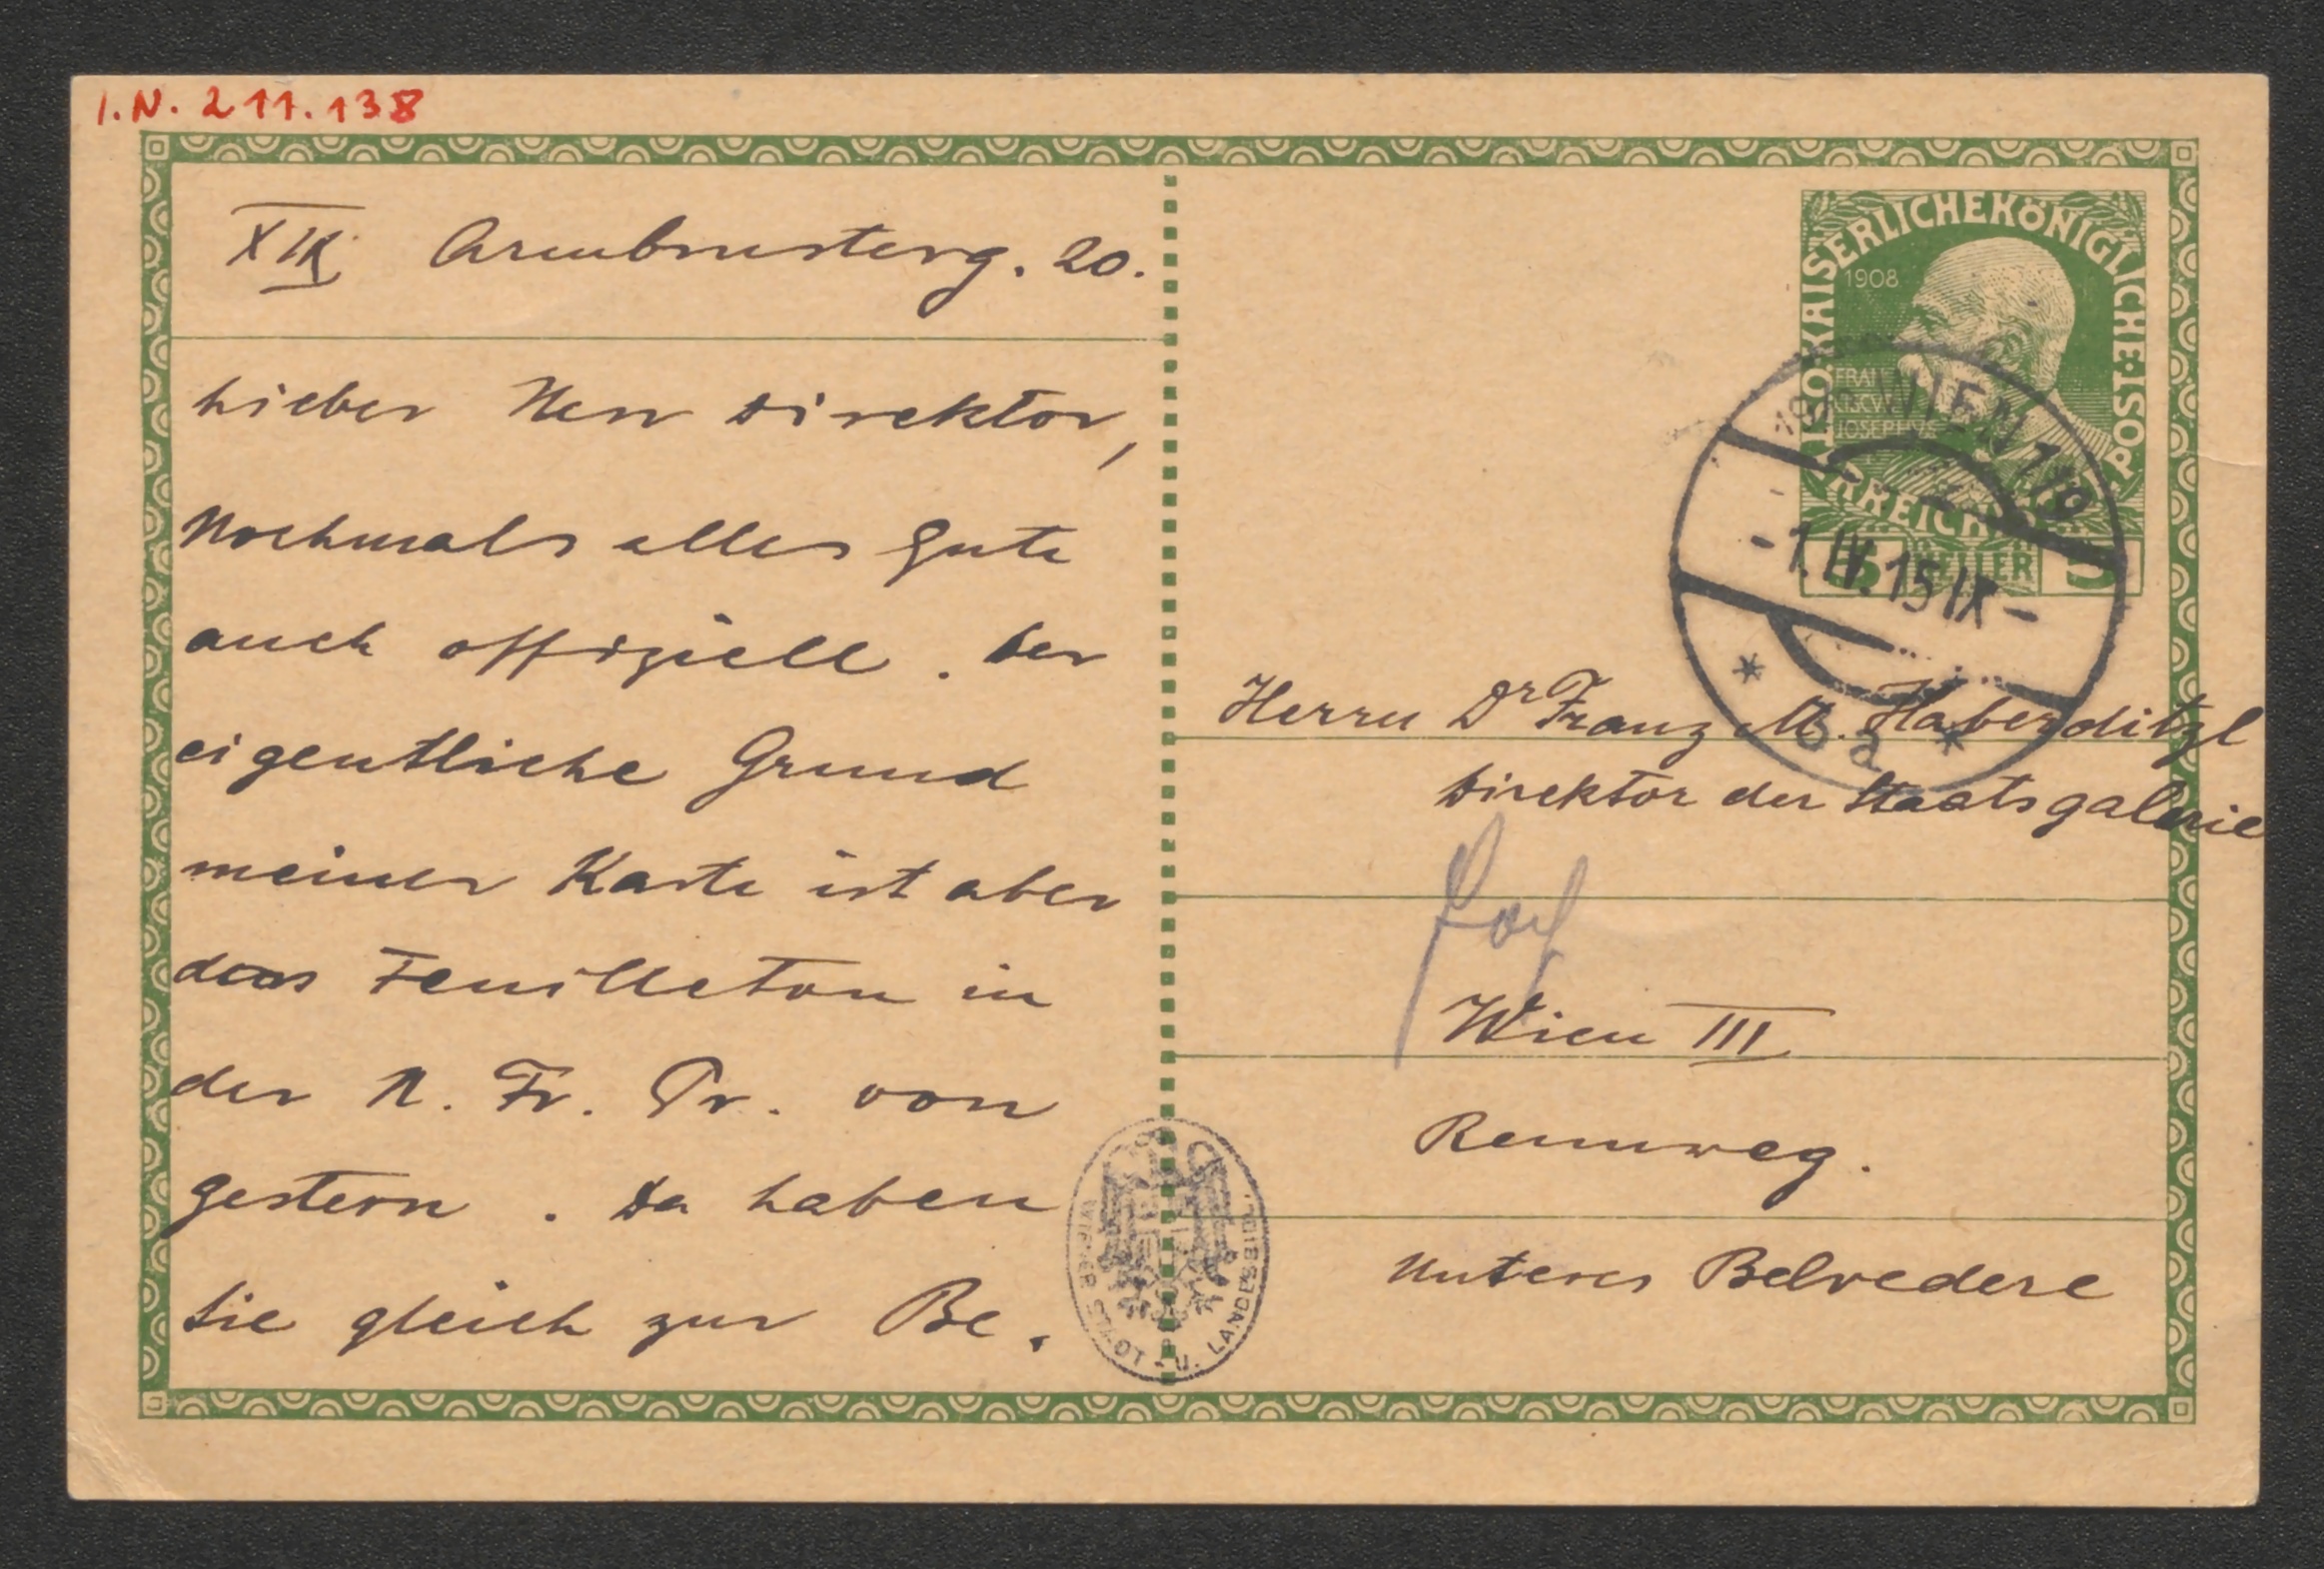 I.N. 211.138
XIX Armbrusterg. 20.
Lieber Herr Direktor,
Nochmals alles Gute
auch offiziell. Der
eigentliche Grund
meiner Karte ist aber
das Feuilleton in
der N. Fr. Pr. von
gestern. Da haben
Sie gleich zur Be.
KAISERLICHEKÖNIGLICHE
1908
HELLER
WIEN
-1.IV.15 IX-
Herrn Dr Franz M. Haberditzl
Direktor der Staatsgalerie
Wien III
Rennweg.
Unteres Belvedere
WIENER STADT - U. LANDESBIBL.